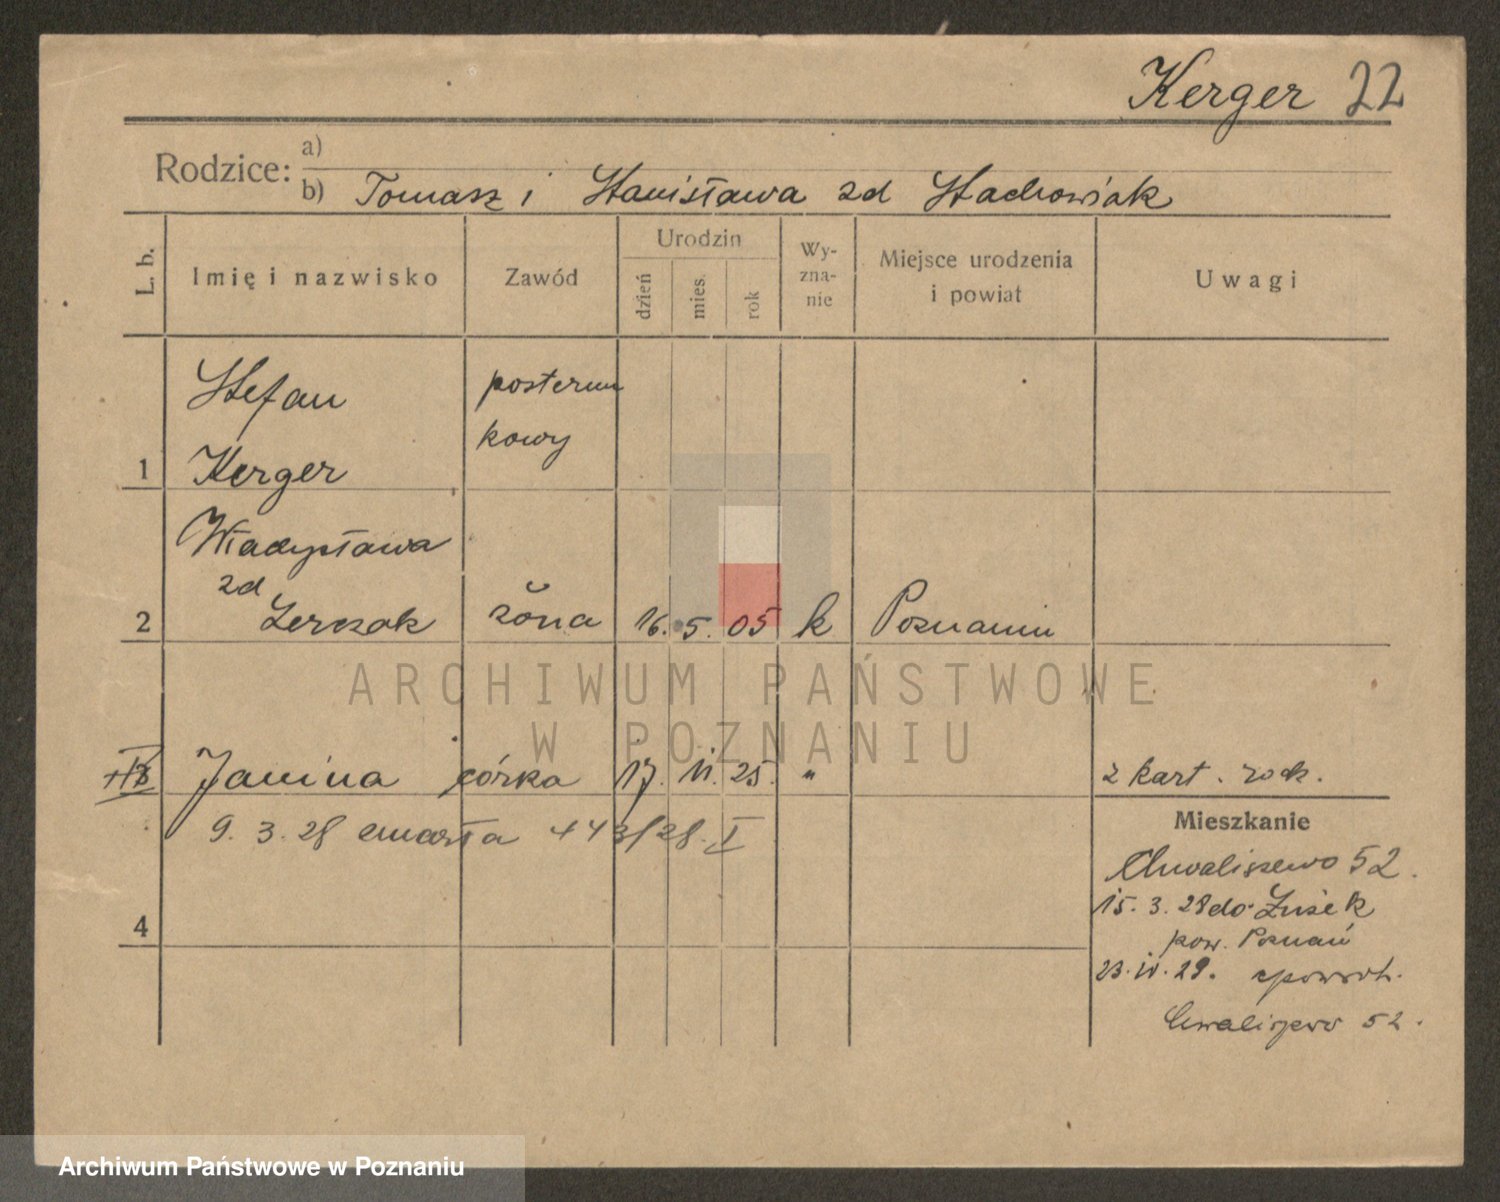 Kerger 22
Rodzice: a)
b) Tomasz i Stanisława zd Stachowiak
L. b. Imię i nazwisko Zawód Urodzin dzień mies. rok Wy-zna-nie Miejsce urodzenia i powiat Uwagi
Stefan posterun
kowy
1 Kerger
Władysława
zd
2 Lerczak żona 16. 5. 05 k Poznaniu
Janina córka 17. 11. 25. " z kart. rodz.
9. 3. 28 zmarła 443/28. I
Mieszkanie
Chwaliszewo 52.
15. 3. 28 do
4
pow. Poznań
23. IV. 29.
Chwaliszewo 52.
ARCHIWUM PAŃSTWOWE
W POZNANIU
Archiwum Państwowe w Poznaniu